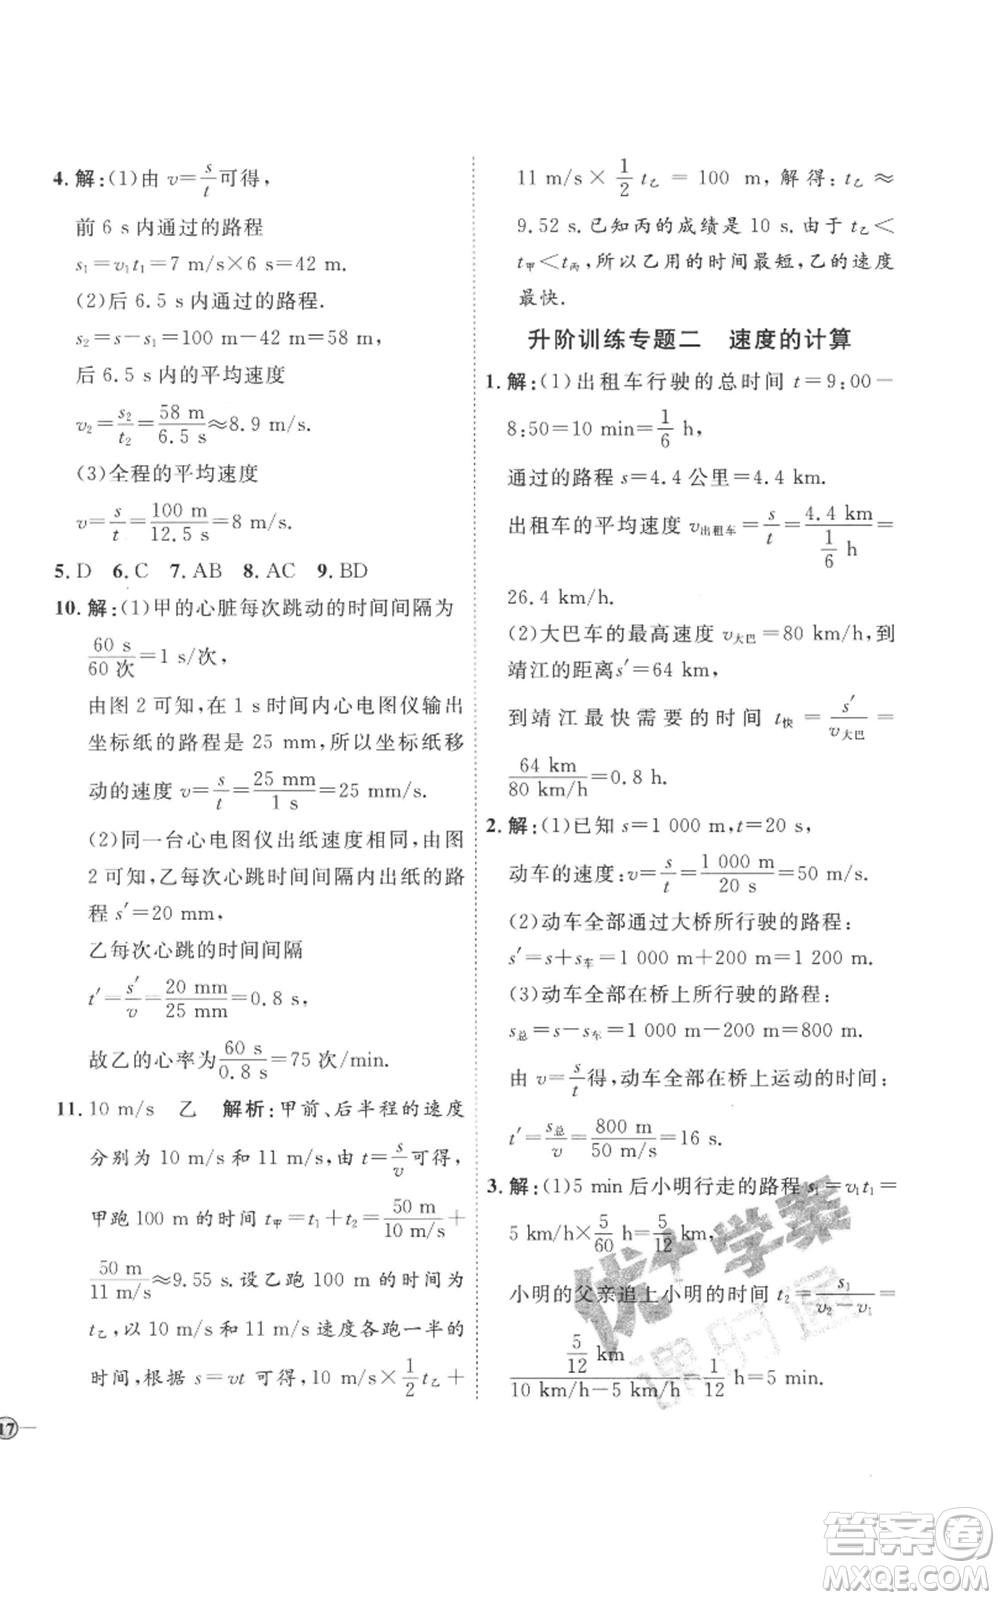 4. 解:(1)由 v=s/t 可得,
前 6 s 内通过的路程
s₁=v₁t₁=7 m/s×6 s=42 m.
(2)后 6.5 s 内通过的路程.
s₂=s-s₁=100 m-42 m=58 m,
后 6.5 s 内的平均速度
v₂=s₂/t₂=58 m/6.5 s≈8.9 m/s.
(3)全程的平均速度
v=s/t=100 m/12.5 s=8 m/s.
5. D 6. C 7. AB 8. AC 9. BD
10. 解:(1)甲的心脏每次跳动的时间间隔为
60 s/60 次=1 s/次,
由图 2 可知,在 1 s时间内心电图仪输出
坐标纸的路程是 25 mm,所以坐标纸移
动的速度 v=s/t=25 mm/1 s=25 mm/s.
(2)同一台心电图仪出纸速度相同,由图
2 可知,乙每次心跳时间间隔内出纸的路
程 s′=20 mm,
乙每次心跳的时间间隔
t′=s′/v=20 mm/25 mm=0.8 s,
故乙的心率为60 s/0.8 s=75 次/min.
11. 10 m/s 乙 解析:甲前、后半程的速度
分别为 10 m/s 和 11 m/s,由 t=s/v可得,
甲跑 100 m 的时间 t甲=t₁+t₂=50 m/10 m/s+
50 m/11 m/s≈9.55 s. 设乙跑 100 m 的时间为
t乙,以 10 m/s 和 11 m/s 速度各跑一半的
时间,根据 s=vt 可得,10 m/s×1/2 t乙+
11 m/s×1/2 t乙=100 m,解得:t乙≈
9.52 s. 已知丙的成绩是 10 s. 由于 t乙<
t甲<t丙,所以乙用的时间最短,乙的速度
最快.
升阶训练专题二 速度的计算
1. 解:(1)出租车行驶的总时间 t=9:00-
8:50=10 min=1/6 h,
通过的路程 s=4.4 公里=4.4 km,
出租车的平均速度 v出租车=s/t=4.4 km/(1/6 h)=
26.4 km/h.
(2)大巴车的最高速度 v大巴=80 km/h,到
靖江的距离 s′=64 km,
到靖江最快需要的时间 t快=s′/v大巴=
64 km/80 km/h=0.8 h.
2. 解:(1)已知 s=1 000 m,t=20 s,
动车的速度:v=s/t=1 000 m/20 s=50 m/s.
(2)动车全部通过大桥所行驶的路程:
s′=s+s车=1 000 m+200 m=1 200 m.
(3)动车全部在桥上所行驶的路程:
s总=s-s车=1 000 m-200 m=800 m.
由 v=s/t得,动车全部在桥上运动的时间:
t′=s总/v=800 m/50 m/s=16 s.
3. 解:(1)5 min 后小明行走的路程 s₁=v₁t₁=
5 km/h×5/60 h=5/12 km,
小明的父亲追上小明的时间 t₂=s₁/(v₂-v₁)=
(5/12 km)/(10 km/h-5 km/h)=1/12 h=5 min.
17
优+学案
课时通
答案圈
MXQE.COM